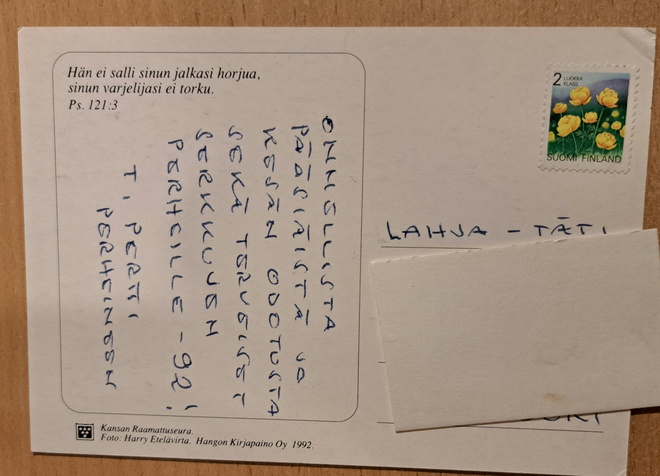 Hän ei salli sinun jalkasi horjua,
sinun varjelijasi ei torku.
Ps. 121:3
ONNELLISTA
PÄÄSIÄISTÄ JA
KESÄN ODOTUSTA
SEKÄ TERVEISET
SERKKUJEN
PERHEILLE -92!
T. PERTTI
PERHEINEEN
2 LUOKKA
KLASS
SUOMI FINLAND
LAHJA - TÄTI
Kansan Raamattuseura.
Foto: Harry Etelävirta. Hangon Kirjapaino Oy 1992.